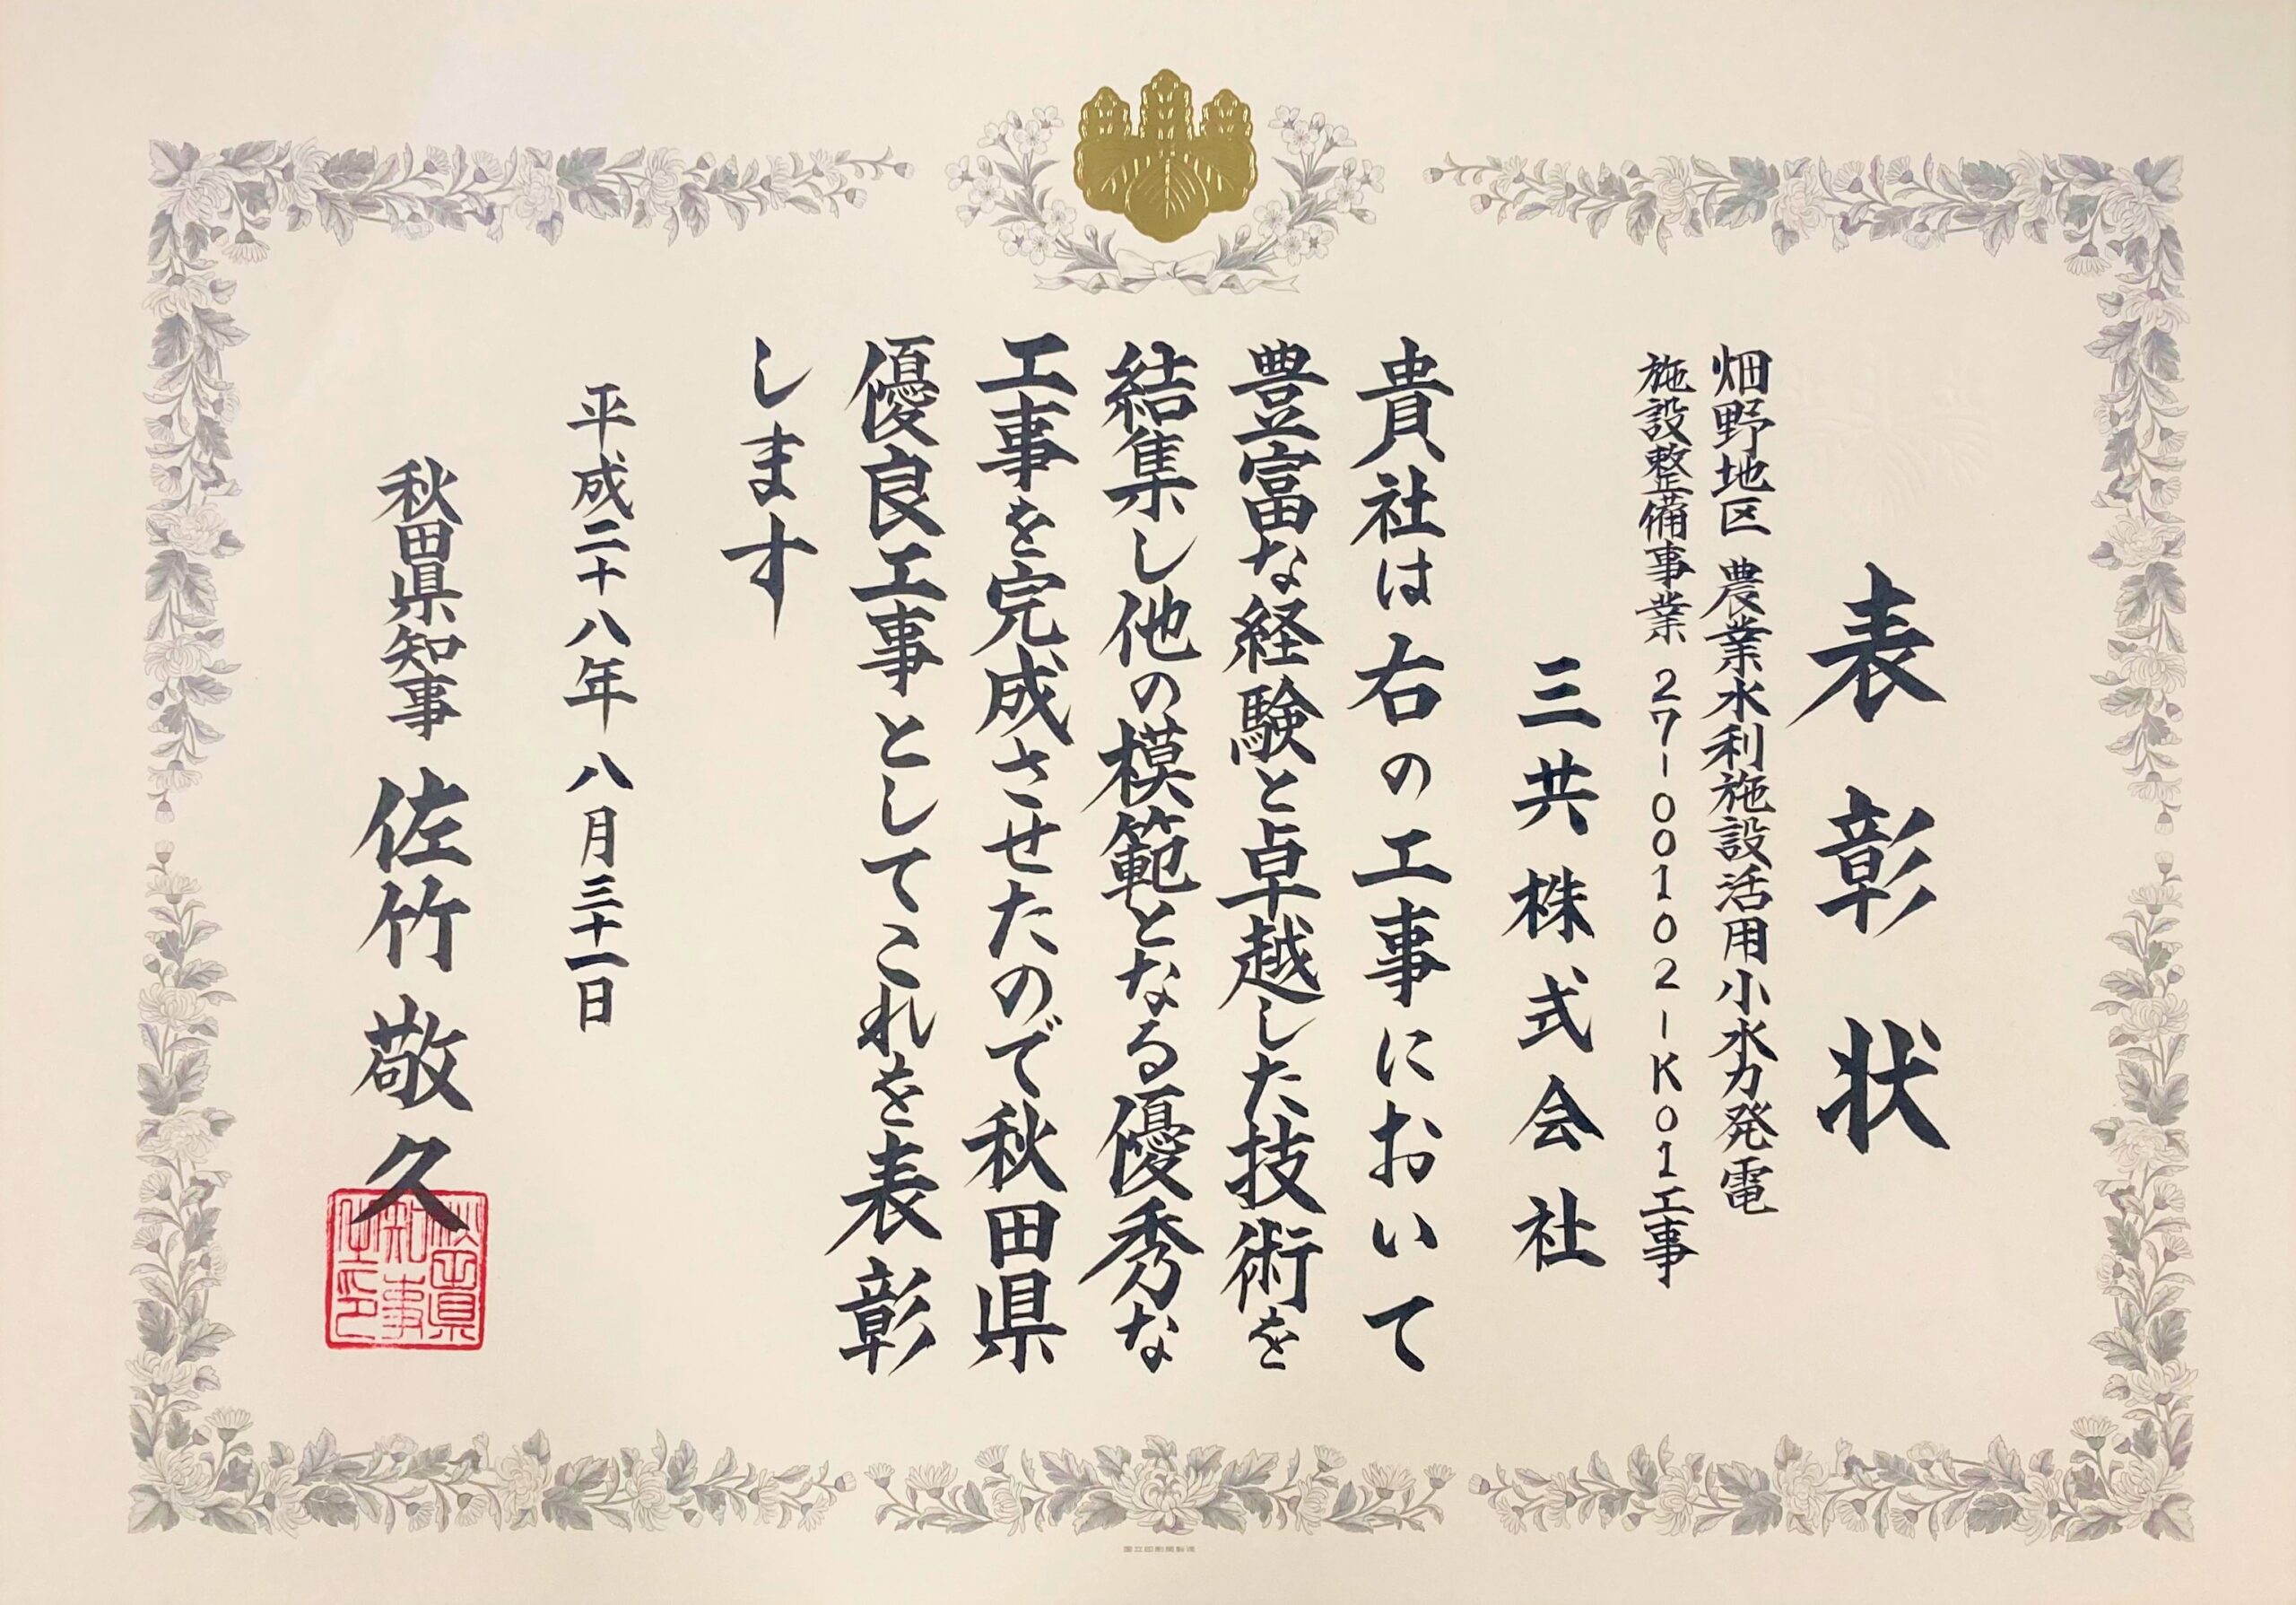 表彰状
畑野地区 農業水利施設活用小水力発電
施設整備事業 27-00102-K01工事
三共株式会社
貴社は右の工事において
豊富な経験と卓越した技術を
結集し他の模範となる優秀な
工事を完成させたので秋田県
優良工事としてこれを表彰
します
平成二十八年八月三十一日
秋田県知事 佐竹敬久
秋田県知事之印
国立印刷局製造